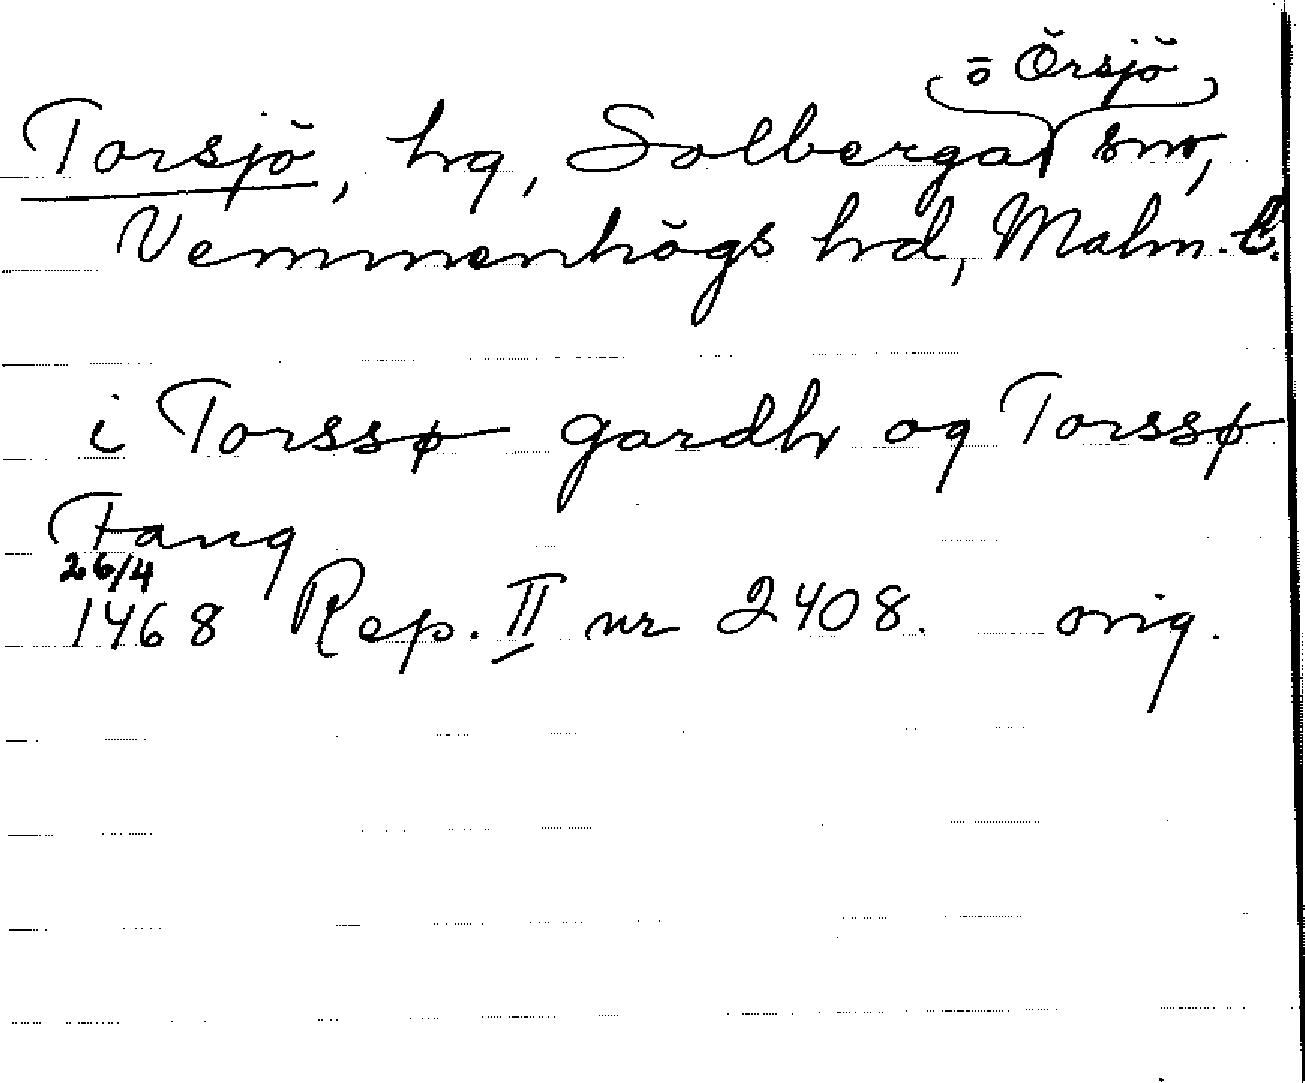 o Örsjö
Torsjö, hg, Solberga snr,
Vemmenhögs hd, Malm. l.
i Torssø gardh og Torssø
Fang
26/4
1468 Rep. II nr 2408. orig.